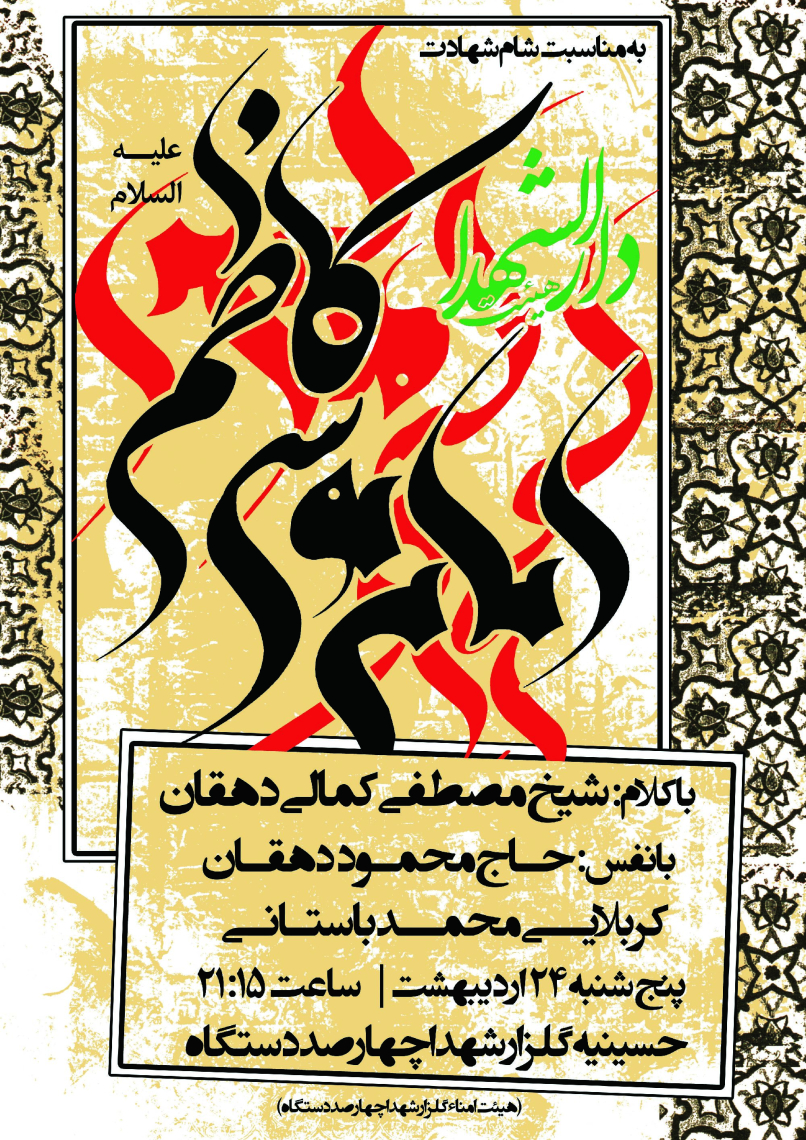 به مناسبت شام شهادت
امام موسی کاظم
علیه
السلام
هیئت
دارالشهدا
با کلام: شیخ مصطفی کمالی دهقان
با نفس: حاج محمود دهقان
کربلایی محمد باستانی
پنج شنبه ۲۴ اردیبهشت | ساعت ۲۱:۱۵
حسینیه گلزار شهدا چهارصد دستگاه
(هیئت امناء گلزار شهدا چهارصد دستگاه)